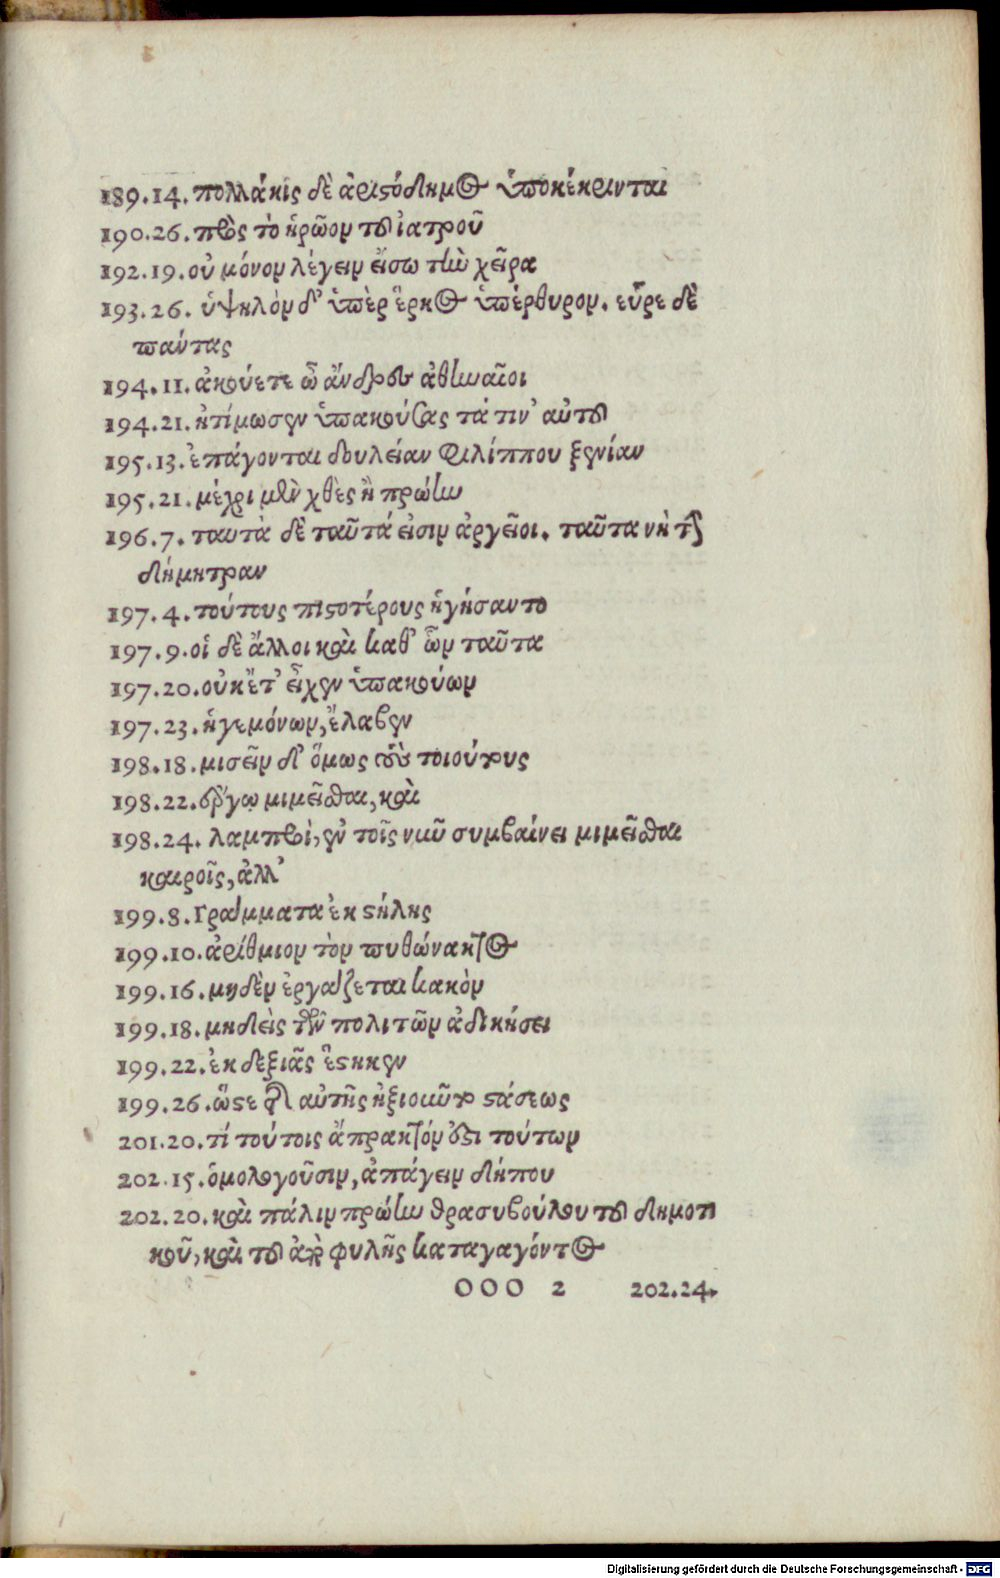 189.14. πολλάκις δὲ ἀριστόδημος ὑποκέκρινται
190.26. πρὸς τὸ ἡρῶον τοῦ ἰατροῦ
192.19. οὐ μόνον λέγειν εἴσω τὴν χεῖρα
193.26. ὑψηλὸν δ' ὑπὲρ ἕρκος ὑπέρθυρον. εὗρε δὲ
πάντας
194.11. ἀκούετε ὦ ἄνδρες ἀθηναῖοι
194.21. ἠτίμωσεν ὑπακούσας τά τιν' αὐτοῦ
195.13. ἐπάγονται δουλείαν φιλίππου ξενίαν
195.21. μέχρι μὲν χθὲς ἢ πρώην
196.7. ταυτὰ δὲ ταῦτά εἰσιν ἀργεῖοι. ταῦτα νὴ τὴν
δήμητραν
197.4. τούτους πιστοτέρους ἡγήσαντο
197.9. οἱ δὲ ἄλλοι καὶ καθ' ὧν ταῦτα
197.20. οὐκ ἔτ' εἶχεν ὑπακούων
197.23. ἡγεμόνων, ἔλαβεν
198.18. μισεῖν δ' ὅμως τοὺς τοιούτους
198.22. ἔργῳ μιμεῖσθαι, καὶ
198.24. λαμπροὶ, ἐν τοῖς νῦν συμβαίνει μιμεῖσθαι
καιροῖς, ἀλλ'
199.8. Γράμματα ἐκ στήλης
199.10. ἀρίθμιον τὸν πυθώνακτος
199.16. μηδὲν ἐργάζεται κακὸν
199.18. μηδεὶς τῶν πολιτῶν ἀδικήσει
199.22. ἐκ δεξιᾶς ἕστηκεν
199.26. ὥστε αὐτῆς ἠξιοῦτο στάσεως
201.20. τί τούτοις ἄπρακτόν ἐστι τούτων
202.15. ὁμολογοῦσιν, ἀπάγειν δήπου
202.20. καὶ πάλιν πρώην θρασυβούλου τοῦ δημοτι
κοῦ, καὶ τοῦ ἀπὸ φυλῆς καταγαγόντος
OOO 2 202.24.
Digitalisierung gefördert durch die Deutsche Forschungsgemeinschaft - DFG